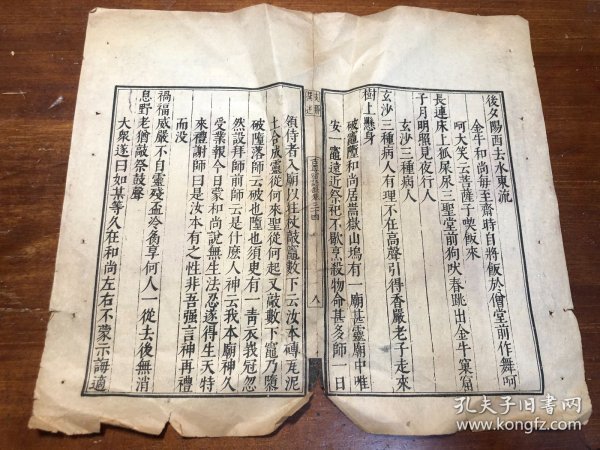 後夕陽西去水東流
金牛和尚每至齋時自將飯於僧堂前作舞呵
呵大笑云菩薩子喫飯來
長連床上狐屎尿三聖堂前狗吠春跳出金牛窠窟
子月明照見夜行人
玄沙三種病人
玄沙三種病人有理不在高聲引得香嚴老子走來
樹上懸身
破竈墮和尚居嵩嶽山塢有一廟甚靈廟中唯
安一竈遠近祭祀不歇烹殺物命甚多師一日
領侍者入廟以拄杖敲竈數下云汝本磚瓦泥
土合成靈從何來聖從何起又敲數下竈乃墮
破墮落師云破也墮也須臾有一青衣峩冠忽
然設拜師前師云是什麼人神云我本廟神久
受業報今日蒙和尚說無生法忍遂得生天特
來禮謝師曰是汝本有之性非吾强言神再禮
而没
禍福威嚴不自靈殘盃冷炙享何人一從去後無消
息野老猶敲祭鼓聲
大衆遂曰如某等久在和尚左右不蒙示誨適
八
孔夫子旧书网
www.kongfz.com